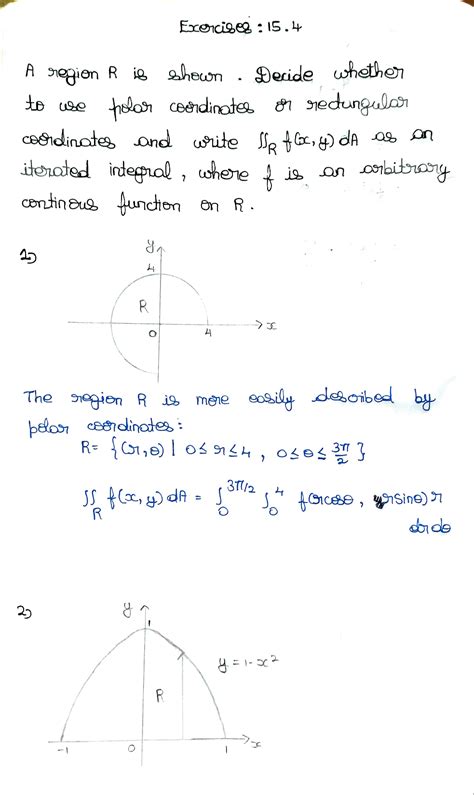 Exercises : 15.4
A region R is shown. Decide whether
to use polar coordinates or rectungular
coordinates and write ∬_R f(x,y) dA as an
iterated integral, where f is an arbitrary
continous function on R.
1)
y
4
R
0
4
x
The region R is more easily described by
polar coordinates:
R = {(r,θ) | 0 ≤ r ≤ 4 , 0 ≤ θ ≤ 3π/2 }
∬_R f(x,y) dA = ∫_0^{3π/2} ∫_0^4 f(rcosθ, rsinθ) r
dr dθ
2)
y
1
y = 1-x²
R
-1
0
1
x